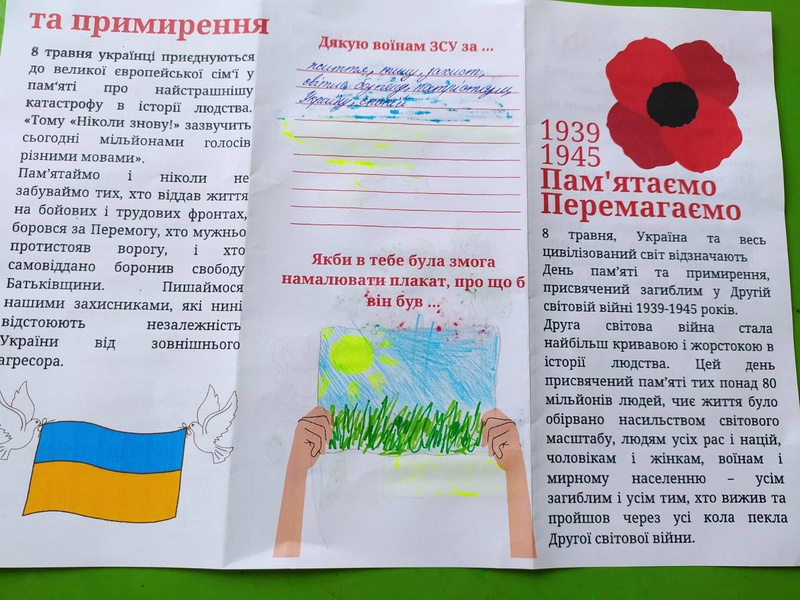 та примирення
8 травня українці приєднуються
до великої європейської сім'ї у
пам'яті про найстрашнішу
катастрофу в історії людства.
«Тому «Ніколи знову!» зазвучить
сьогодні мільйонами голосів
різними мовами».
Пам'ятаймо і ніколи не
забуваймо тих, хто віддав життя
на бойових і трудових фронтах,
боровся за Перемогу, хто мужньо
протистояв ворогу, і хто
самовіддано боронив свободу
Батьківщини. Пишаймося
нашими захисниками, які нині
відстоюють незалежність
України від зовнішнього
агресора.
Дякую воїнам ЗСУ за ...
життя, тишу, захист,
світле
Україну
Якби в тебе була змога
намалювати плакат, про що б
він був ...
1939
1945
Пам'ятаємо
Перемагаємо
8 травня, Україна та весь
цивілізований світ відзначають
День пам'яті та примирення,
присвячений загиблим у Другій
світовій війні 1939-1945 років.
Друга світова війна стала
найбільш кривавою і жорстокою в
історії людства. Цей день
присвячений пам'яті тих понад 80
мільйонів людей, чиє життя було
обірвано насильством світового
масштабу, людям усіх рас і націй,
чоловікам і жінкам, воїнам і
мирному населенню – усім
загиблим і усім тим, хто вижив та
пройшов через усі кола пекла
Другої світової війни.